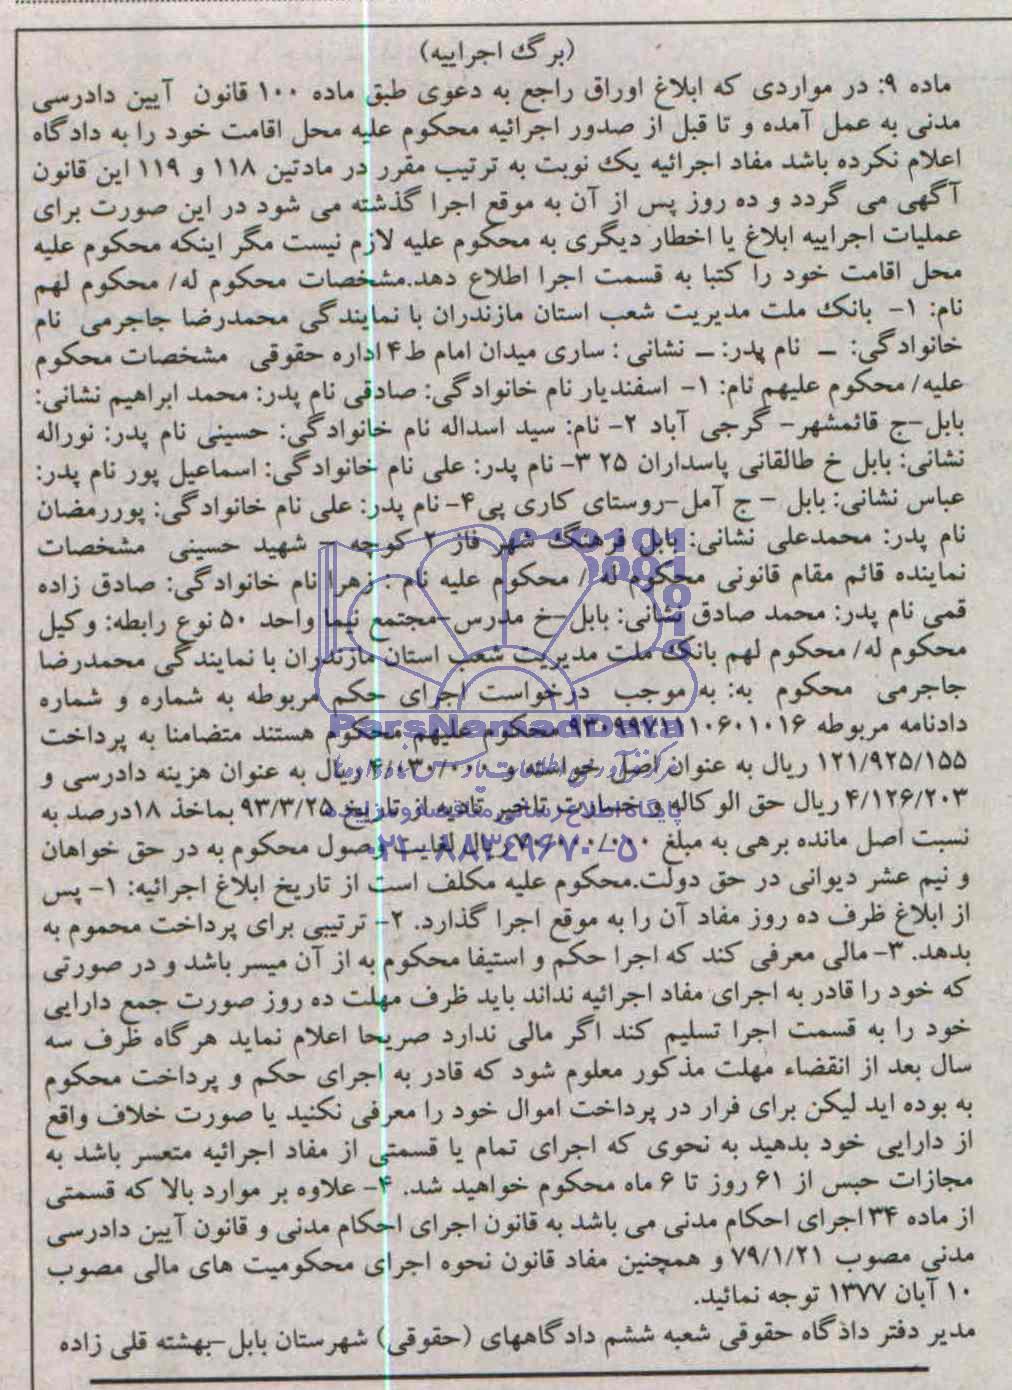 (برگ اجراییه)
ماده ۹: در مواردی که ابلاغ اوراق راجع به دعوی طبق ماده ۱۰۰ قانون آیین دادرسی
مدنی به عمل آمده و تا قبل از صدور اجرائیه محکوم علیه محل اقامت خود را به دادگاه
اعلام نکرده باشد مفاد اجرائیه یک نوبت به ترتیب مقرر در مادتین ۱۱۸ و ۱۱۹ این قانون
آگهی می گردد و ده روز پس از آن به موقع اجرا گذشته می شود در این صورت برای
عملیات اجراییه ابلاغ یا اخطار دیگری به محکوم علیه لازم نیست مگر اینکه محکوم علیه
محل اقامت خود را کتبا به قسمت اجرا اطلاع دهد.مشخصات محکوم له/ محکوم لهم
نام: ۱- بانک ملت مدیریت شعب استان مازندران با نمایندگی محمدرضا جاجرمی نام
خانوادگی: – نام پدر: – نشانی : ساری میدان امام ط۴ اداره حقوقی مشخصات محکوم
علیه/ محکوم علیهم نام: ۱- اسفندیار نام خانوادگی: صادقی نام پدر: محمد ابراهیم نشانی:
بابل-ج قائمشهر- گرجی آباد ۲- نام: سید اسداله نام خانوادگی: حسینی نام پدر: نوراله
نشانی: بابل خ طالقانی پاسداران ۲۵ ۳- نام پدر: علی نام خانوادگی: اسماعیل پور نام پدر:
عباس نشانی: بابل - ج آمل-روستای کاری پی۴- نام پدر: علی نام خانوادگی: پوررمضان
نام پدر: محمدعلی نشانی: بابل فرهنگ شهر فاز ۲ کوچه - شهید حسینی مشخصات
نماینده قائم مقام قانونی محکوم له / محکوم علیه نام : زهرا نام خانوادگی: صادق زاده
قمی نام پدر: محمد صادق نشانی: بابل-خ مدرس-مجتمع نیما واحد ۵۰ نوع رابطه: وکیل
محکوم له/ محکوم لهم بانک ملت مدیریت شعب استان مازندران با نمایندگی محمدرضا
جاجرمی محکوم به: به موجب درخواست اجرای حکم مربوطه به شماره و شماره
دادنامه مربوطه ۹۳۰۹۹۷۱۱۱۰۶۰۱۰۱۶ محکوم علیهم محکوم هستند متضامنا به پرداخت
۱۲۱/۹۲۵/۱۵۵ ریال به عنوان اصل خواسته و ریال به عنوان هزینه دادرسی و
۴/۱۲۶/۲۰۳ ریال حق الوکاله و خسارت تاخیر تادیه از تاریخ ۹۳/۳/۲۵ بماخذ ۱۸درصد به
نسبت اصل مانده برهی به مبلغ ریال لغایت وصول محکوم به در حق خواهان
و نیم عشر دیوانی در حق دولت.محکوم علیه مکلف است از تاریخ ابلاغ اجرائیه: ۱- پس
از ابلاغ ظرف ده روز مفاد آن را به موقع اجرا گذارد. ۲- ترتیبی برای پرداخت محموم به
بدهد. ۳- مالی معرفی کند که اجرا حکم و استیفا محکوم به از آن میسر باشد و در صورتی
که خود را قادر به اجرای مفاد اجرائیه نداند باید ظرف مهلت ده روز صورت جمع دارایی
خود را به قسمت اجرا تسلیم کند اگر مالی ندارد صریحا اعلام نماید هرگاه ظرف سه
سال بعد از انقضاء مهلت مذکور معلوم شود که قادر به اجرای حکم و پرداخت محکوم
به بوده اید لیکن برای فرار در پرداخت اموال خود را معرفی نکنید یا صورت خلاف واقع
از دارایی خود بدهید به نحوی که اجرای تمام یا قسمتی از مفاد اجرائیه متعسر باشد به
مجازات حبس از ۶۱ روز تا ۶ ماه محکوم خواهید شد. ۴- علاوه بر موارد بالا که قسمتی
از ماده ۳۴ اجرای احکام مدنی می باشد به قانون اجرای احکام مدنی و قانون آیین دادرسی
مدنی مصوب ۷۹/۱/۲۱ و همچنین مفاد قانون نحوه اجرای محکومیت های مالی مصوب
۱۰ آبان ۱۳۷۷ توجه نمائید.
مدیر دفتر دادگاه حقوقی شعبه ششم دادگاههای (حقوقی) شهرستان بابل-بهشته قلی زاده
ParsNamadData
پایگاه اطلاع رسانی مناقصه و مزایده
۰۲۱-۸۸۳۴۹۶۷۰-۵